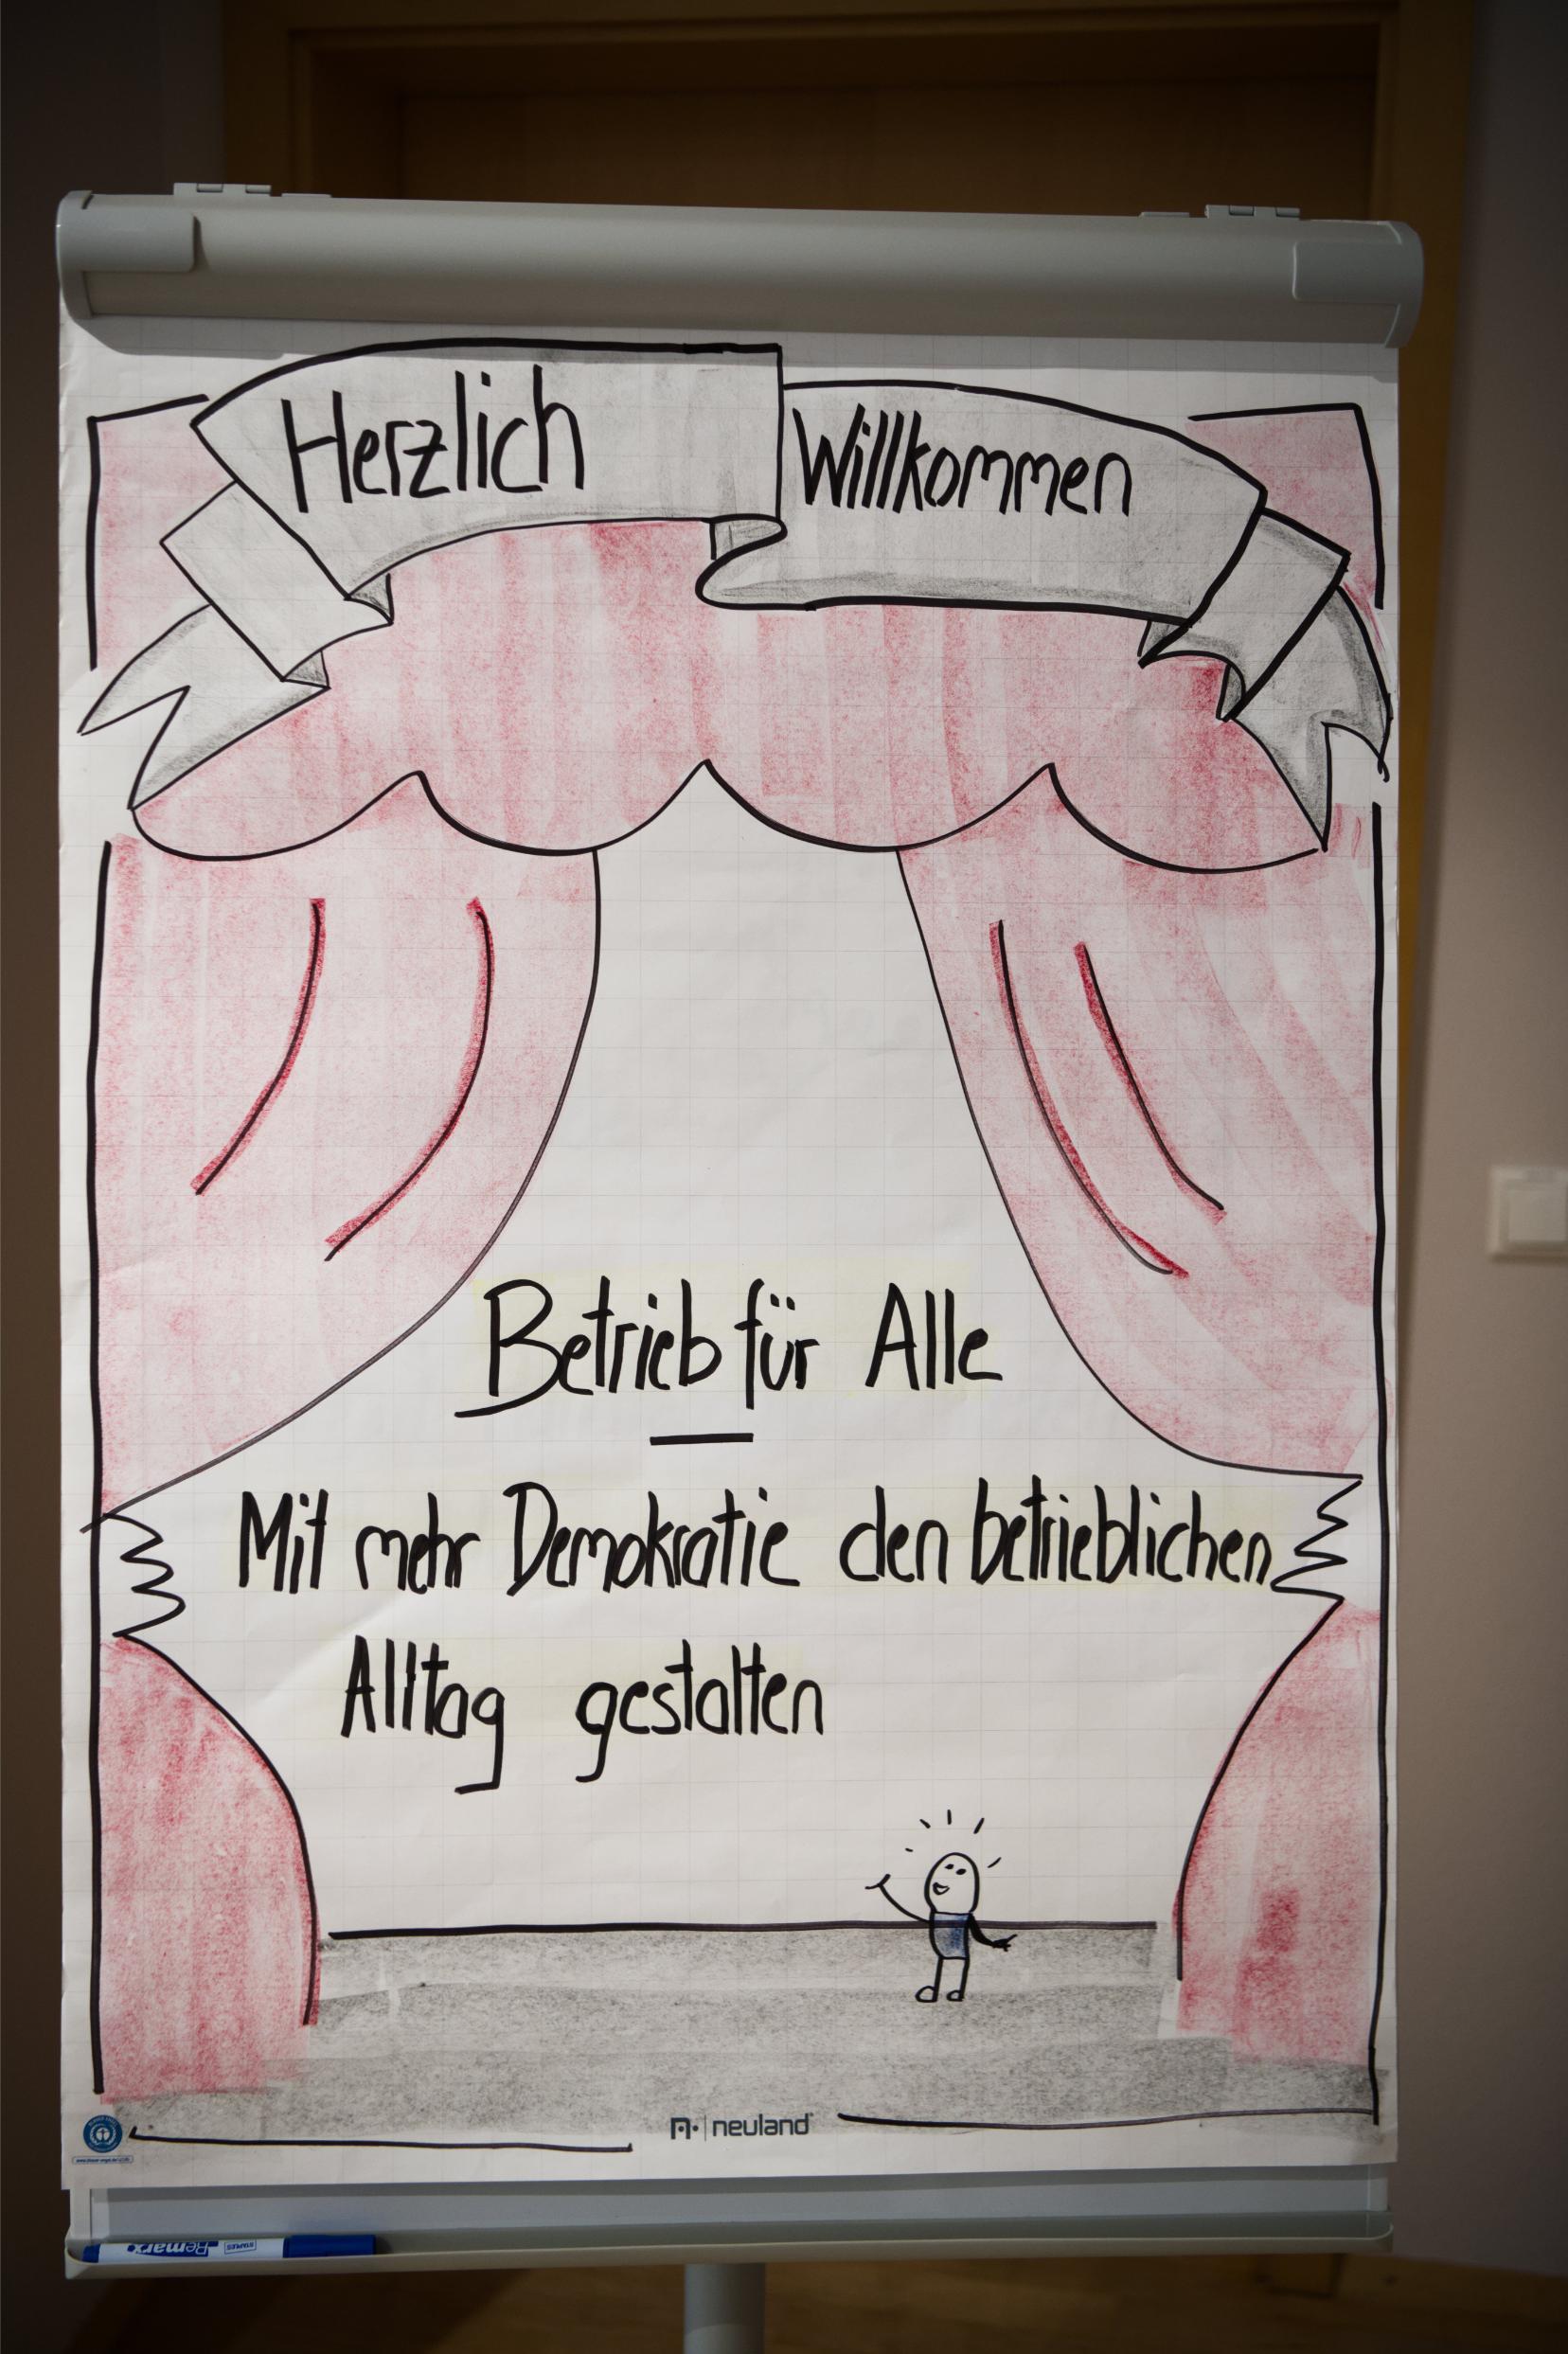 Herzlich Willkommen
Betrieb für Alle
Mit mehr Demokratie den betrieblichen
Alltag gestalten
neuland
Bemarx
STAPLES